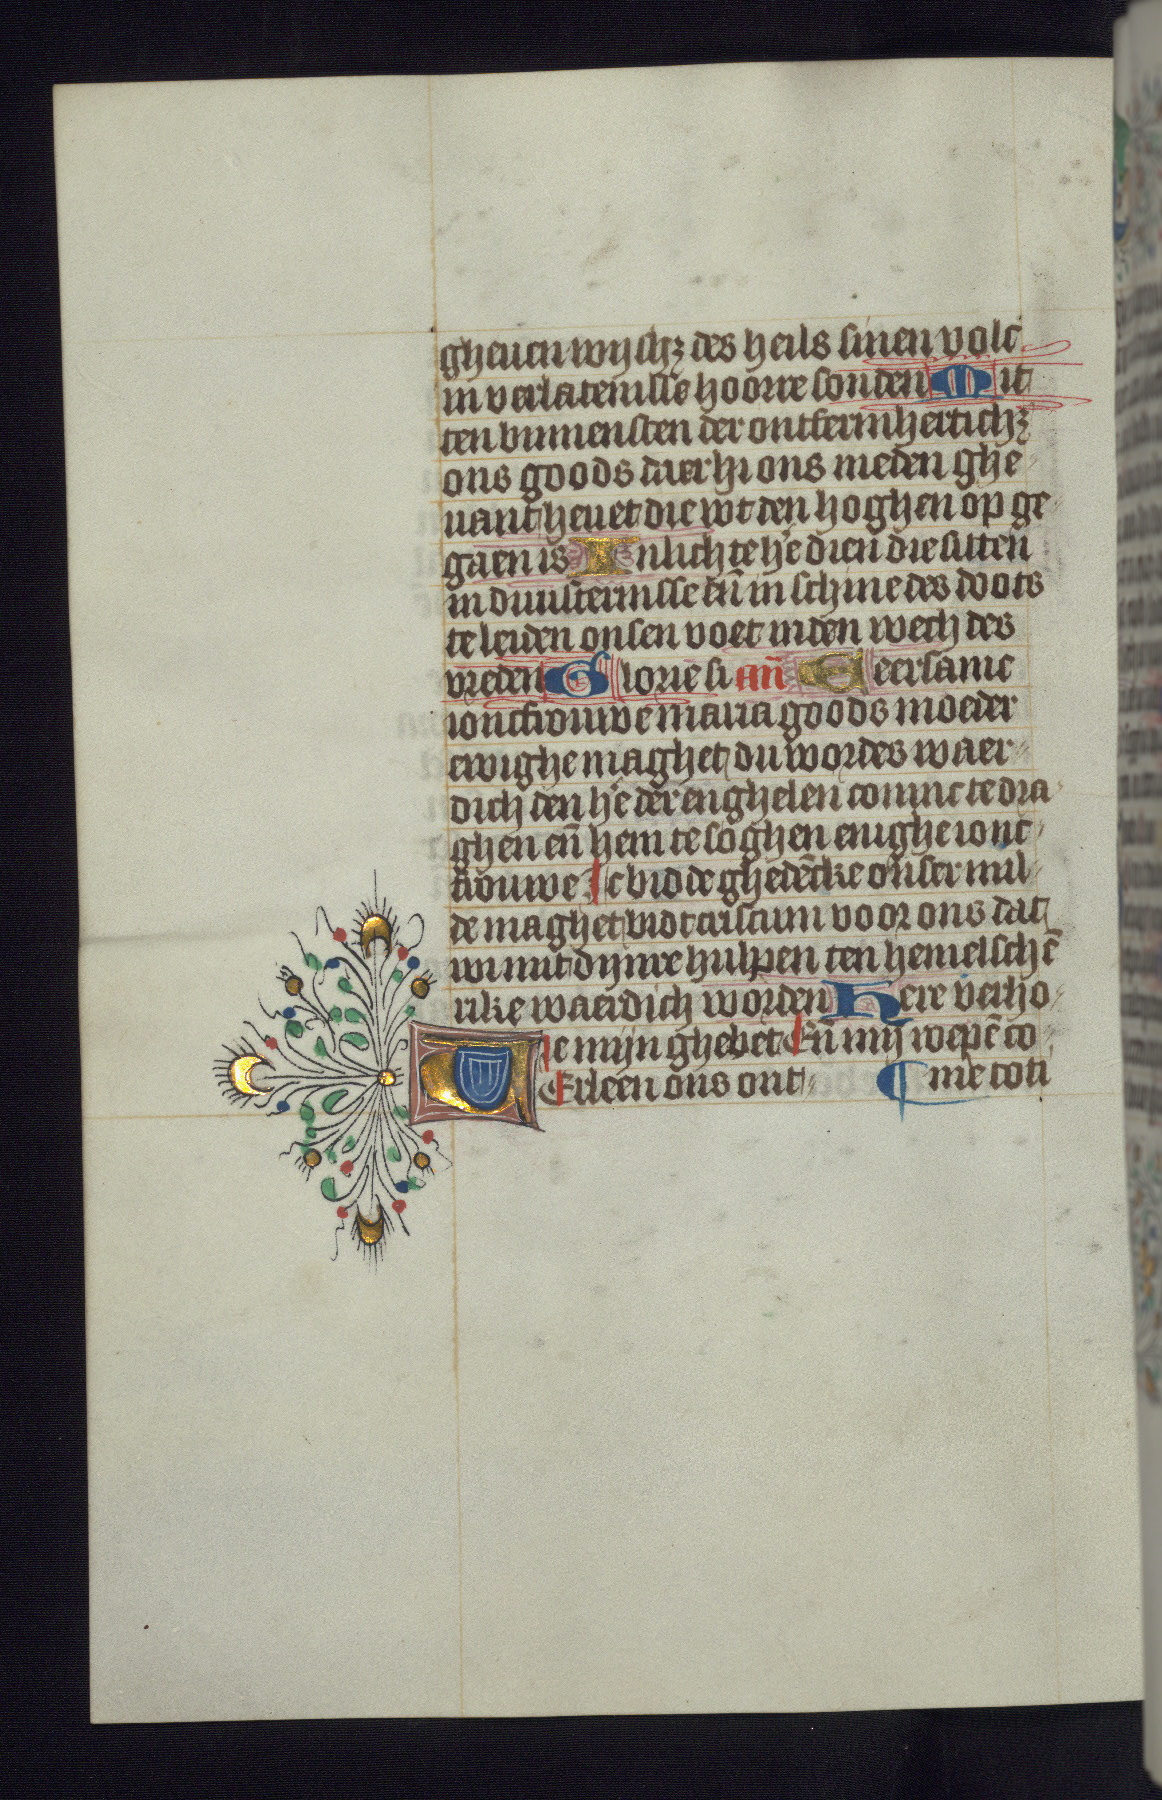 gheuen wijshꝫ des heils sinen volc
in verlatenisse hoorre sonden Mit
ten binnensten der ontfermhertichꝫ
ons goods daer hi ons meden ghe
uant heuet die wt den hoghen op ge
gaen is Inlichte hē dien die sitten
in duusternisse eñ in schine des doots
te leiden onsen voet in den wech des
vreden Glorie si añ Eersame
ioncfrouwe maria goods moeder
ewighe maghet du wordes waer
dich den hē der enghelen coninc te dra
ghen eñ hem te soghen enighe ionc
frouwe Ic bidde ghedēcke onser mil
de maghet cristum voor ons dat
wi mit dijnre hulpen ten hemelschē
rike waerdich worden Here verho
re mijn ghebet Eñ mij roepē co
Erleen ons ont me toti